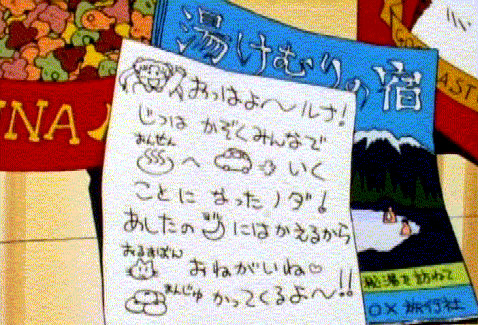 湯けむりの宿
おっはよ〜ルナ!
じつは かぞくみんなで
おんせん
♨へ いく
ことに なったノダ!
あしたの にはかえるから
おるすばん
おねがいね♡
まんじゅ かってくるよ〜!!
秘湯を訪ねて
○×旅行社
UNA
ASTO